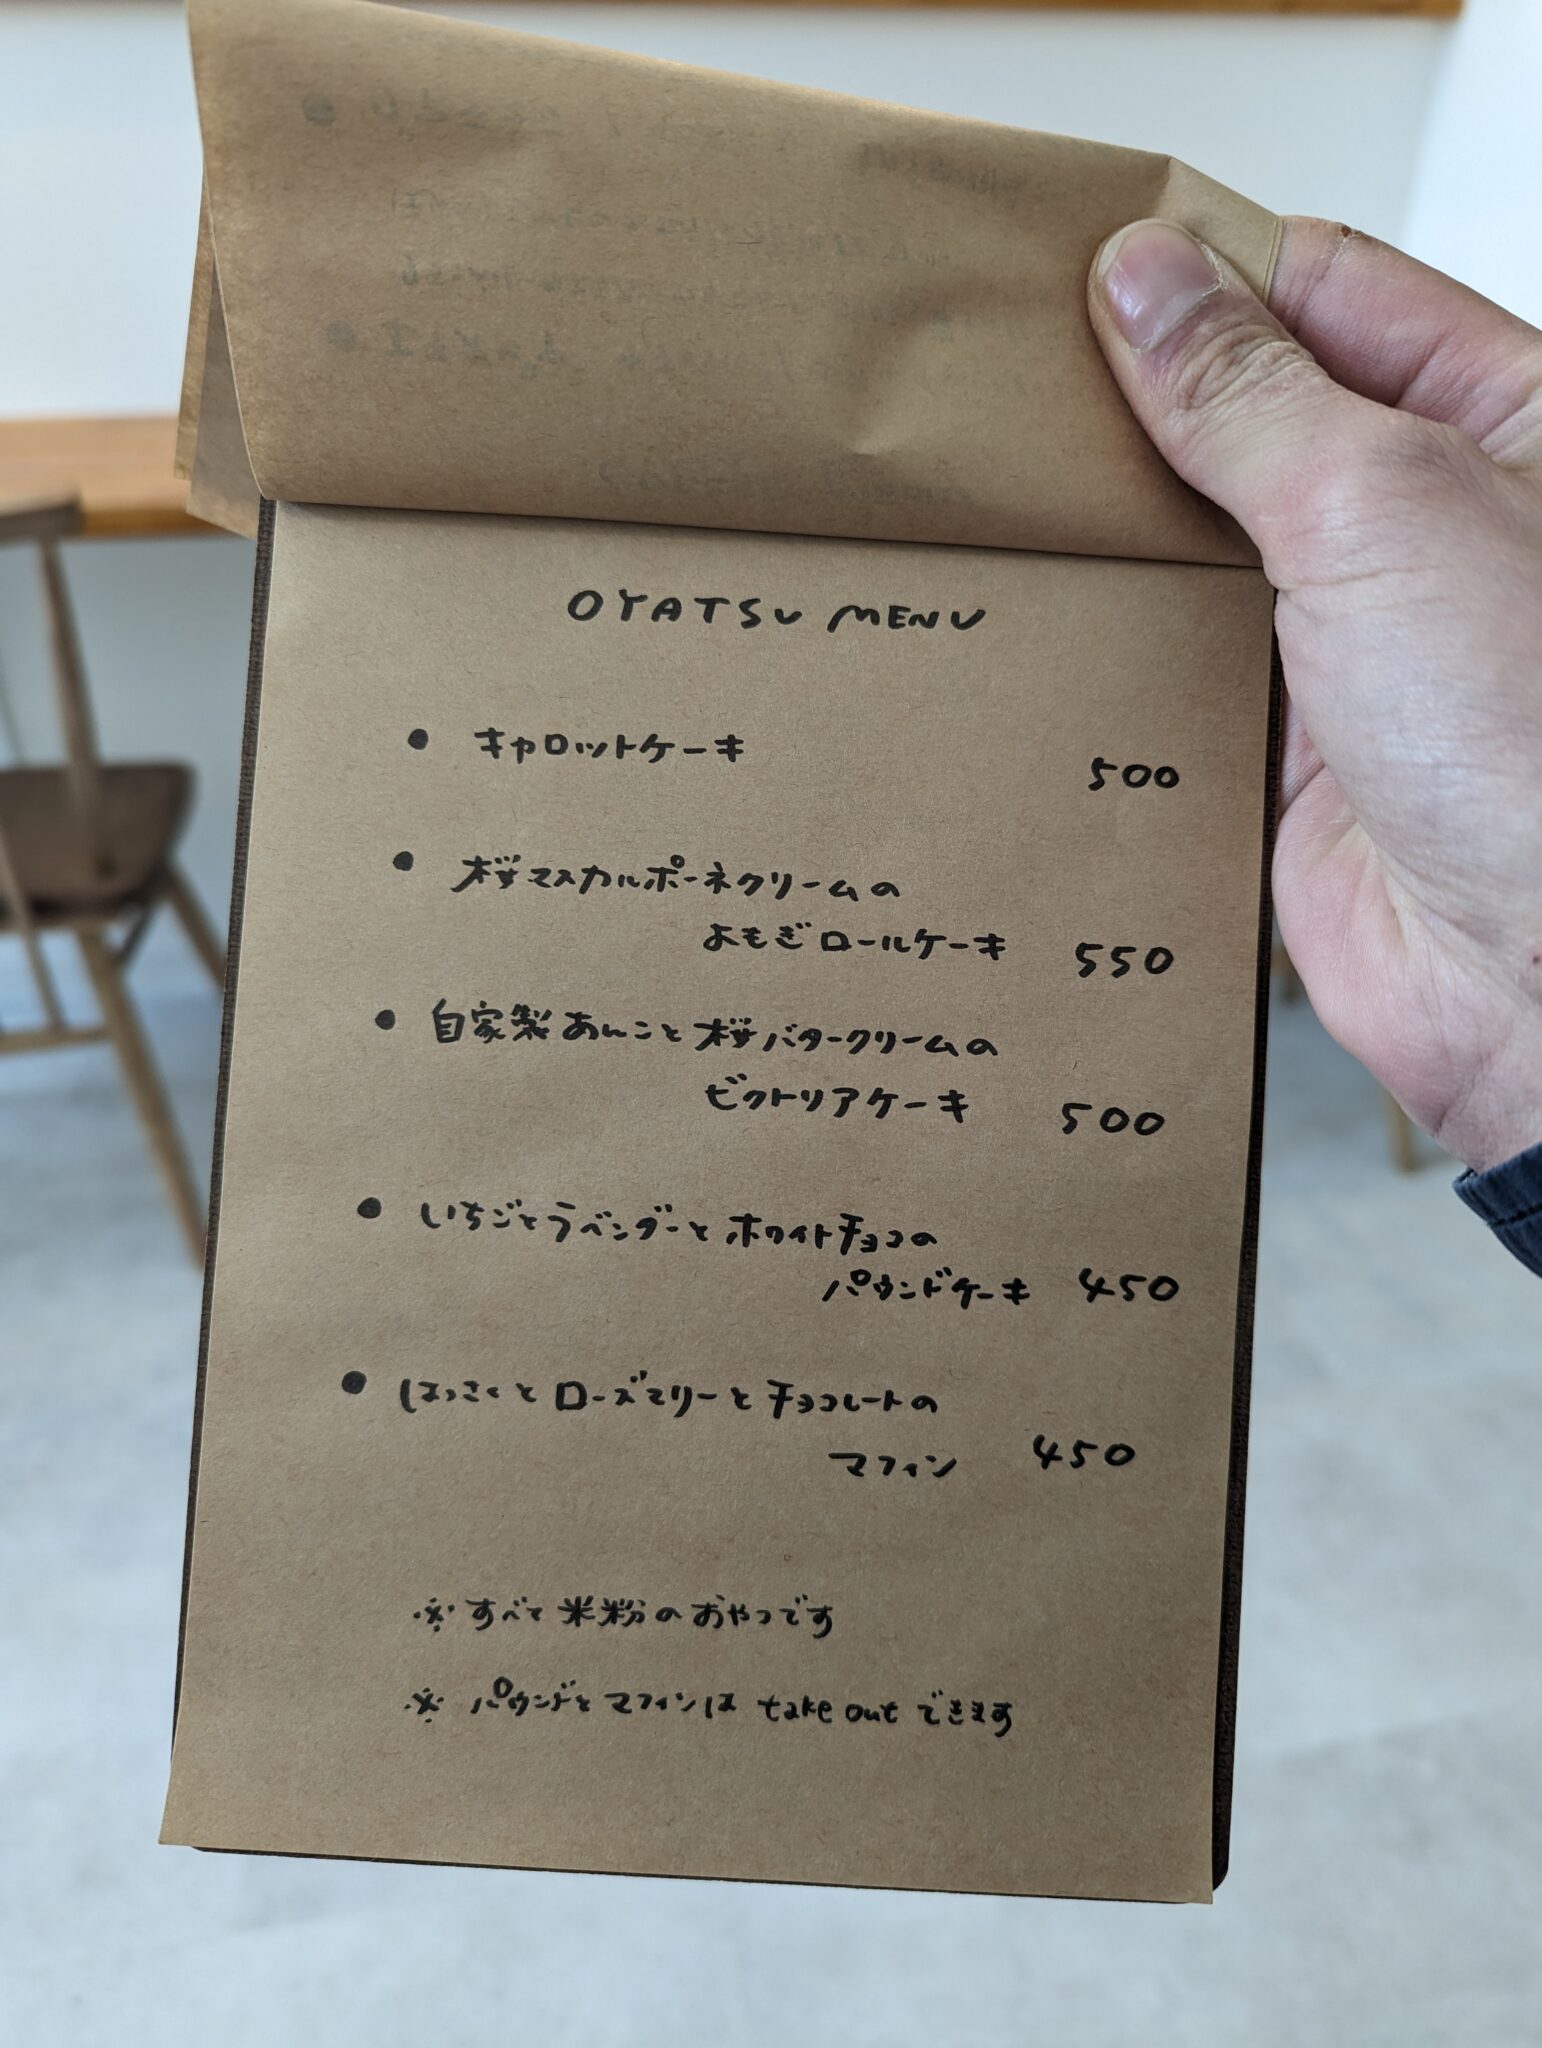 OYATSU MENU
● キャロットケーキ 500
● 桜マスカルポーネクリームの
よもぎロールケーキ 550
● 自家製あんこと桜バタークリームの
ビクトリアケーキ 500
● いちごとラベンダーとホワイトチョコの
パウンドケーキ 450
● はっさくとローズマリーとチョコレートの
マフィン 450
※ すべて米粉のおやつです
※ パウンドとマフィンは take out できます